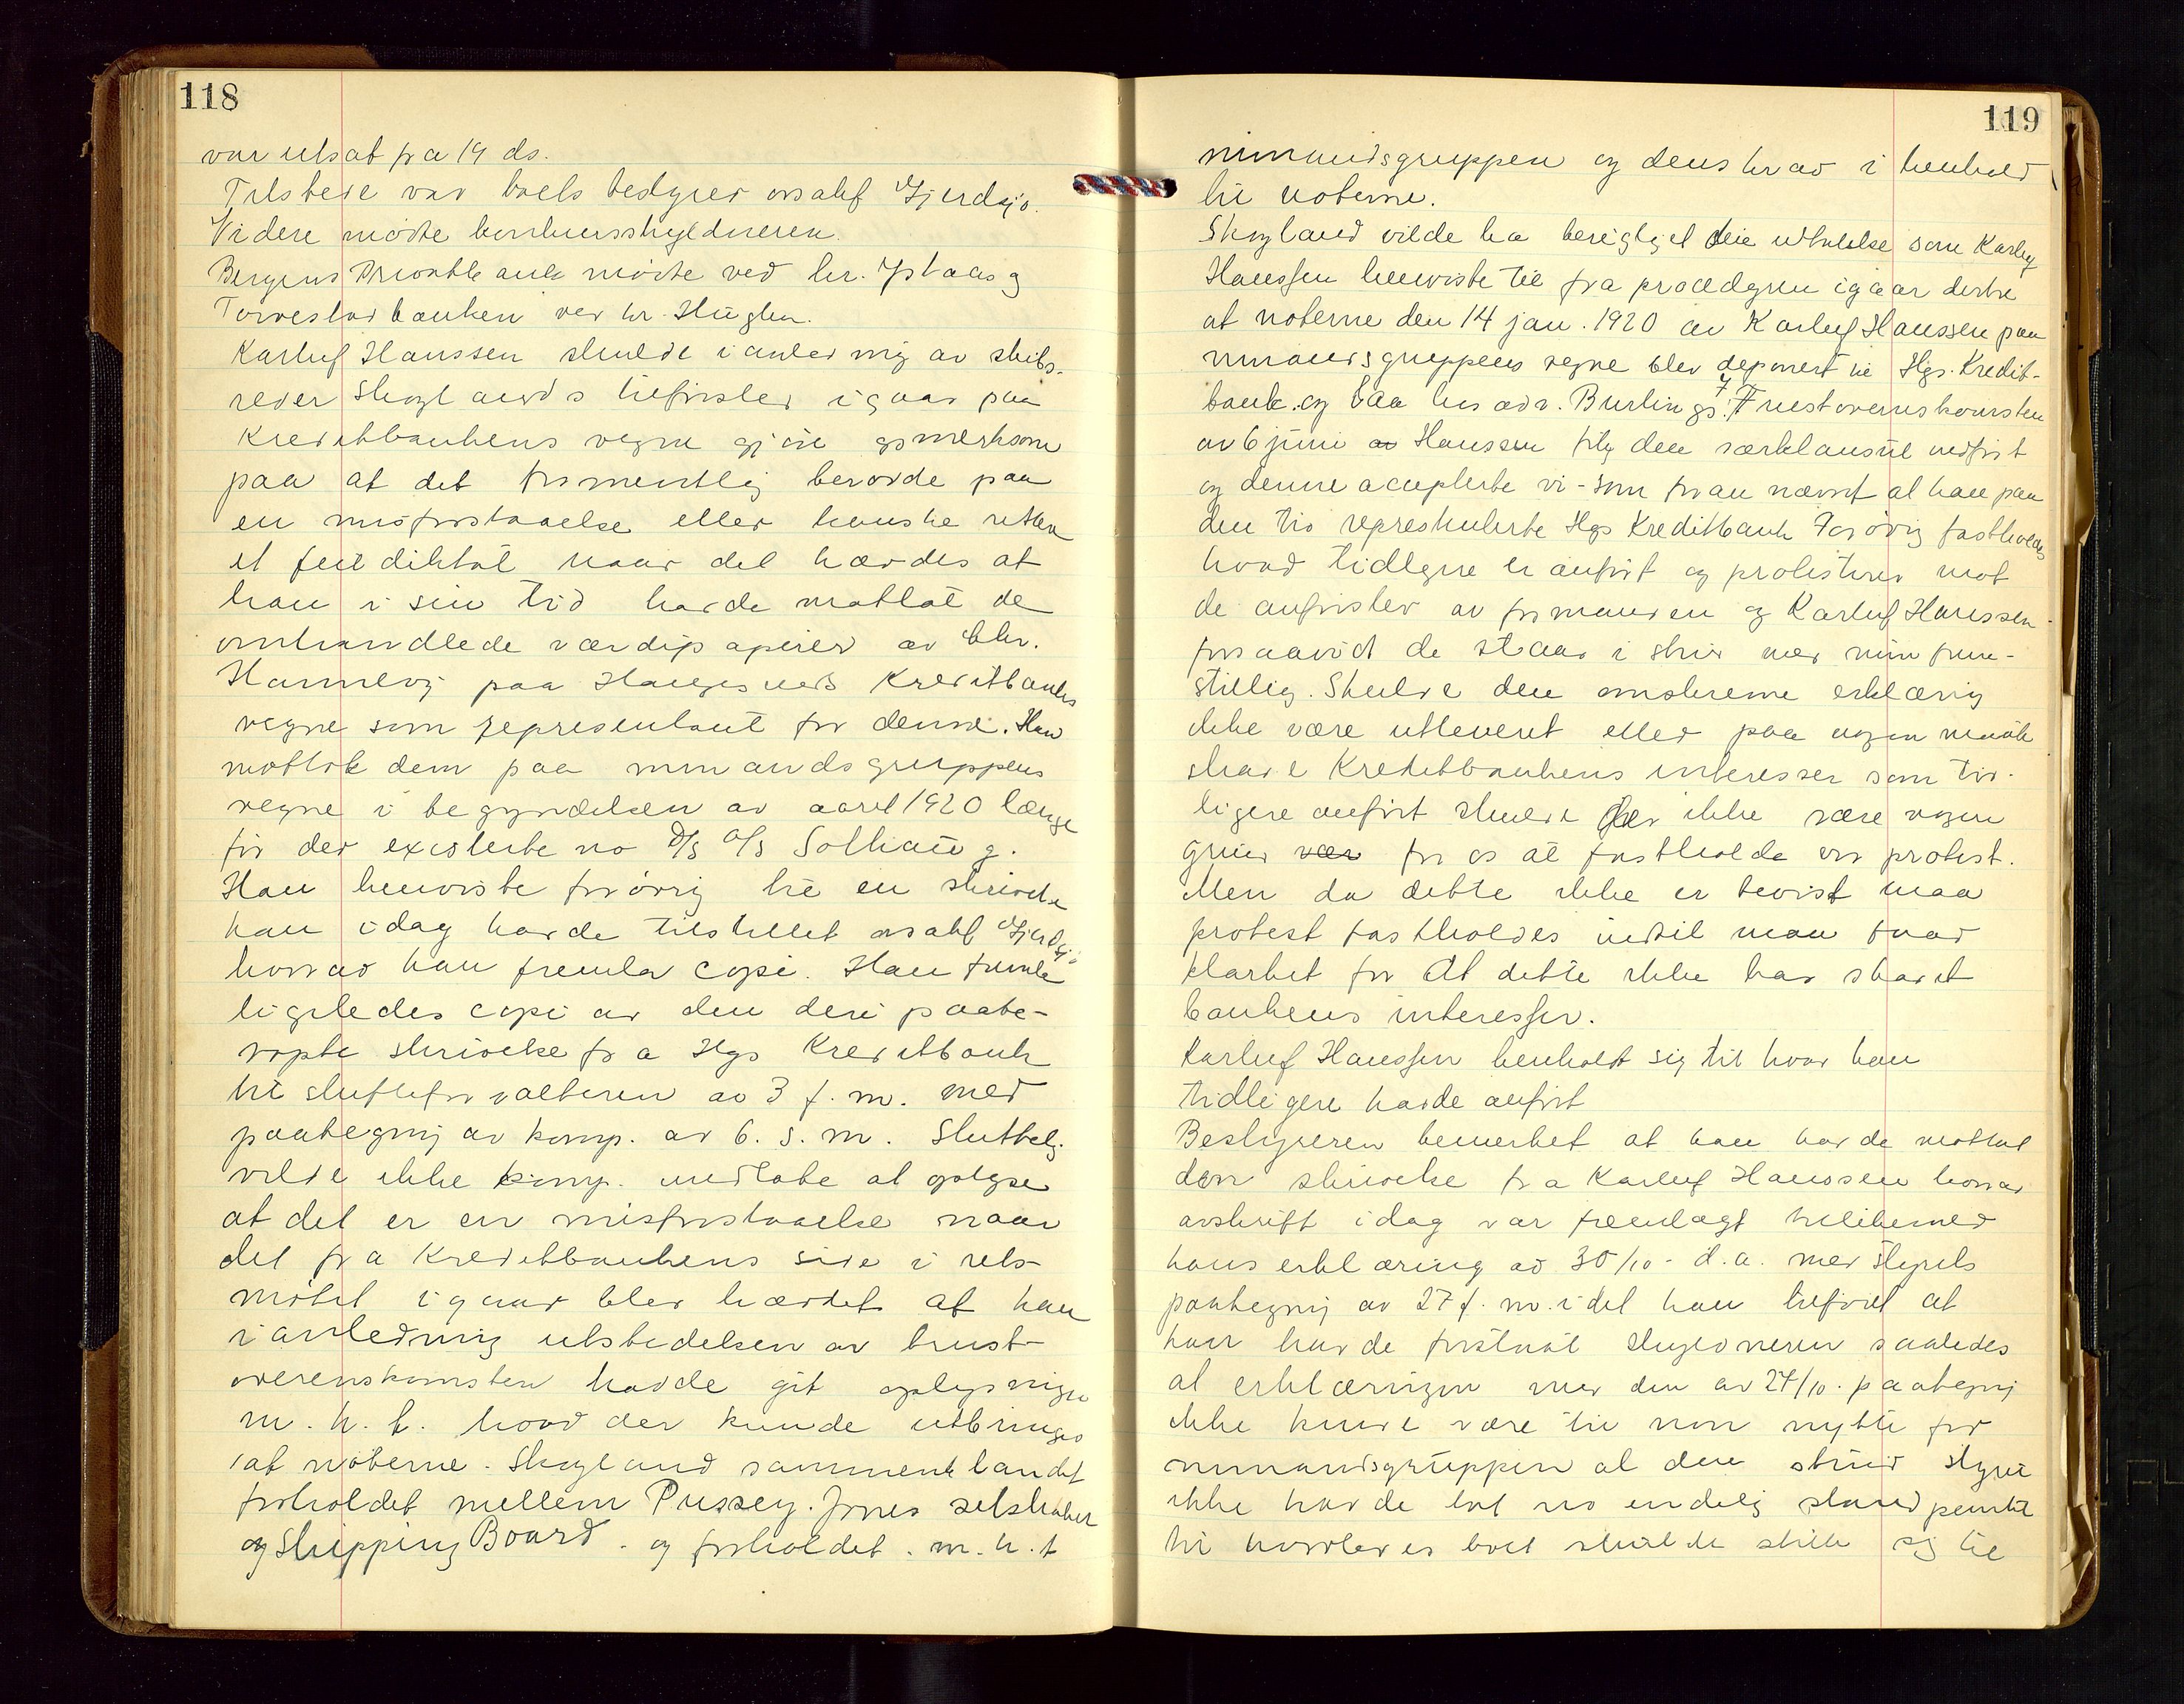 118
var utsat fra 19 ds.
Tilstede var boets bestyrer ovsakf Gjerdsjø.
Videre møtte konkursskyldneren.
Bergens Privatbank møtte ved hr. Ystaas og
Torvestad banken ved hr. Hüglen.
Karluf Hanssen skulde i anledning av skibs-
reder Skoglands tilførsler igaar paa
Kreditbankens vegne gjøre opmerksom
paa at det formentlig berodde paa
en misforstaaelse eller kanske rettere
et feil diktat naar det hævdes at
han i sin tid hadde mottat de
omhandlede værdipapirer av Chr.
Hannevig paa Haugesunds Kreditbanks
vegne som representant for denne. Han
mottok dem paa nmandsgruppens
vegne i begyndelsen av aaret 1920 længe
før der existerte no D/S A/S Solhaug.
Han henviste forøvrig til en skrivelse
han idag hadde tilstillet ovsakf Gjerdsjø
hvorav han fremla copi. Han fremla
ligeledes copi av den deri paabe-
ropte skrivelse fra Hgs Kreditbank
til slutteforvalteren av 3 f. m. med
paategning av komp. av 6. s. m. Sluttelig
vilde ikke komp. undlate at oplyse
at det er en misforstaaelse naar
det fra Kreditbankens side i rets-
møtet igaar blev hævdet at han
i anledning utstedelsen av trust-
overenskomsten hadde git oplysninger
m. h. t. hvad der kunde utbringes
at noterne. Skogland sammenblandet
forholdet mellem Pussey. Jones selskabet
og Shipping Board. og forholdet. m. h. t
119
nmandsgruppen og dens krav i henhold
til noterne.
Skogland vilde ha berigtiget den uttalelse som Karluf
Hanssen henviste til fra procedyren igaar derhen
at noterne den 14 jan. 1920 av Karluf Hanssen paa
nmandsgruppens vegne blev deponert i Hgs. Kredit-
bank. og paa hr adv. Burlings. Trustoverenskomsten
av 6 juni av Hanssen fik den særklausul vedført
og denne accepterte vi - som foran nævnt at han paa
den tid representerte Hgs Kreditbank Forøvrig fastholdes
hvad tidligere er anført og protesterer mot
de anførsler av formanden og Karluf Hanssen
forsaavidt de staar i strid med min frem-
stilling. Skulde den omskrevne erklæring
ikke være utleveret eller paa nogen maate
skade Kreditbankens interesser som tid-
ligere anført skulde der ikke være nogen
grund for os at fastholde vor protest.
Men da dette ikke er bevist maa
protest fastholdes indtil man faar
klarhet for at dette ikke har skadet
bankens interesser.
Karluf Hanssen henholdt sig til hvad han
tidligere hadde anført
Bestyreren bemerket at han hadde mottat
den skrivelse fra Karluf Hanssen hvorav
avskrift idag var fremlagt tillikemed
hans erklæring av 30/10 - d. a. med Styrets
paategning av 27 f. m. idet han tilføiet at
han hadde forstaat skyldneren saaledes
at erklæringen med den av 27/10. paategning
ikke kunde være til non nytte for
nmandsgruppen al den stund Styret
ikke hadde tat no endelig standpunkt
til hvorledes boet skulde stille sig til